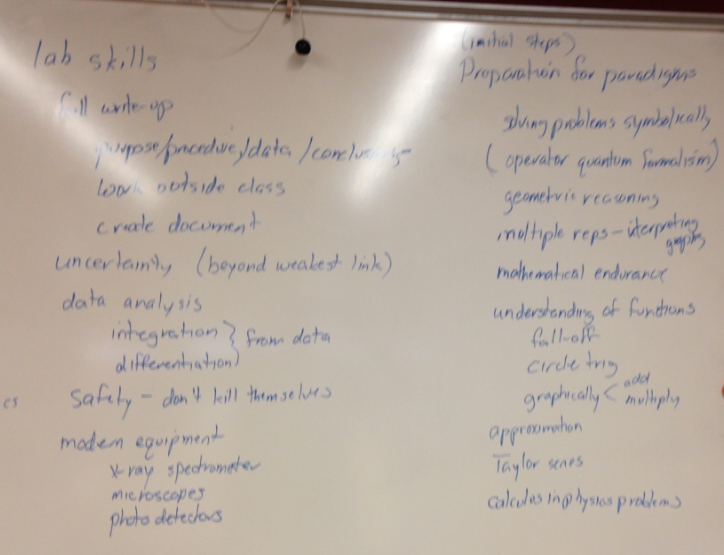 lab skills
full write-up
purpose/procedure/data/conclusions
work outside class
create document
uncertainty (beyond weakest link)
data analysis
integration } from data
differentiation
cs
safety - don't kill themselves
modern equipment
x-ray spectrometer
microscopes
photo detectors
(initial steps)
Preparation for paradigms
solving problems symbolically
(operator quantum formalism)
geometric reasoning
multiple reps - interpreting graphs
mathematical endurance
understanding of functions
fall-off
circle trig
graphically < add multiply
approximation
Taylor series
calculus in physics problems